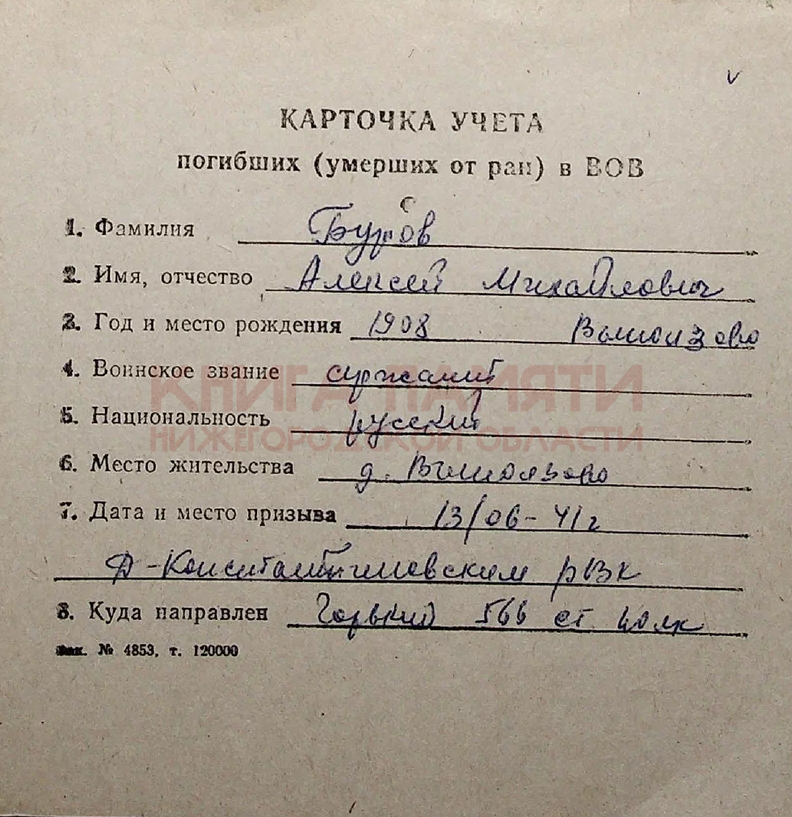 v
КАРТОЧКА УЧЕТА
погибших (умерших от ран) в ВОВ
1. Фамилия
2. Имя, отчество Алексей Михайлович
3. Год и место рождения 1908
4. Воинское звание
КНИГА ПАМЯТИ
5. Национальность русский
НИЖЕГОРОДСКОЙ ОБЛАСТИ
6. Место жительства д.
7. Дата и место призыва 13/06-41г
Д-Константиновским рвк
8. Куда направлен Горький 566 ст полк
Зак. № 4853, т. 120000